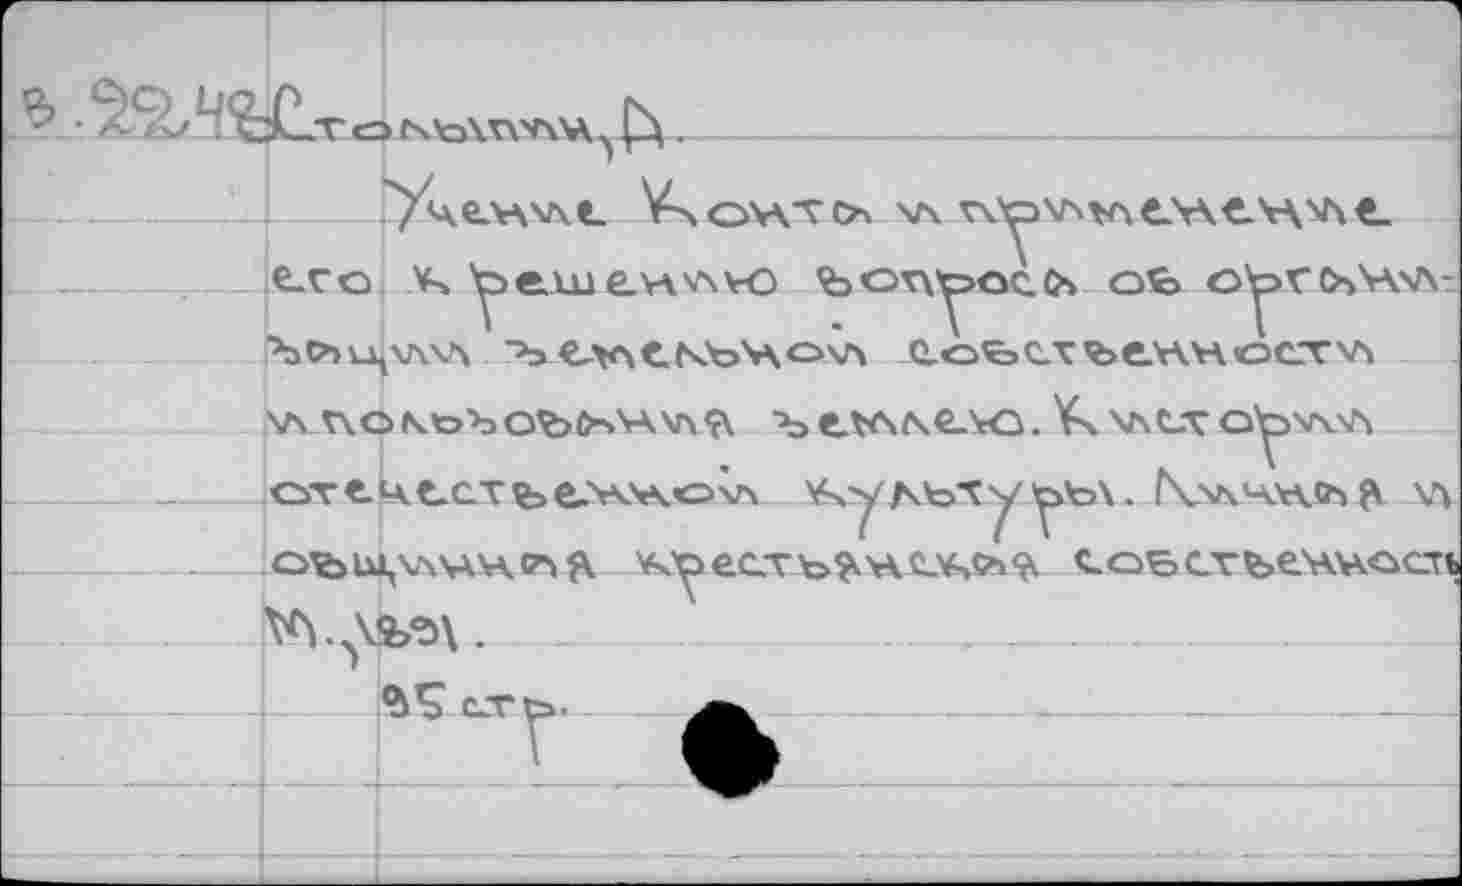 В.22.483 Столыпин, Д.
Учение Конта и применение
его к решению вопроса об органи-
зации земельной собственности
и пользования землею. К истории
отечественной культуры. Личная и
общинная крестьянская собственность
М., 1891.
25 стр.